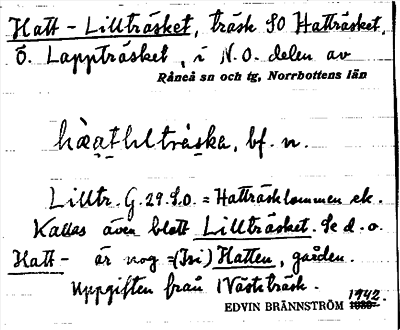 Hatt-Lillträsket, träsk SO Hatträsket,
Ö. Lappträsket, i N.O. delen av
Råneå sn och tg, Norrbottens län
hatlılltråska, bf. n.
Lilltr. G. 29 S.O. = Hatträsklommen ek.
Kallas även blott Lillträsket. Se d.o.
Hatt- är nog = (Iri) Hatten, gården.
Uppgiften från Västiträsk.
1942.
EDVIN BRÄNNSTRÖM 1939